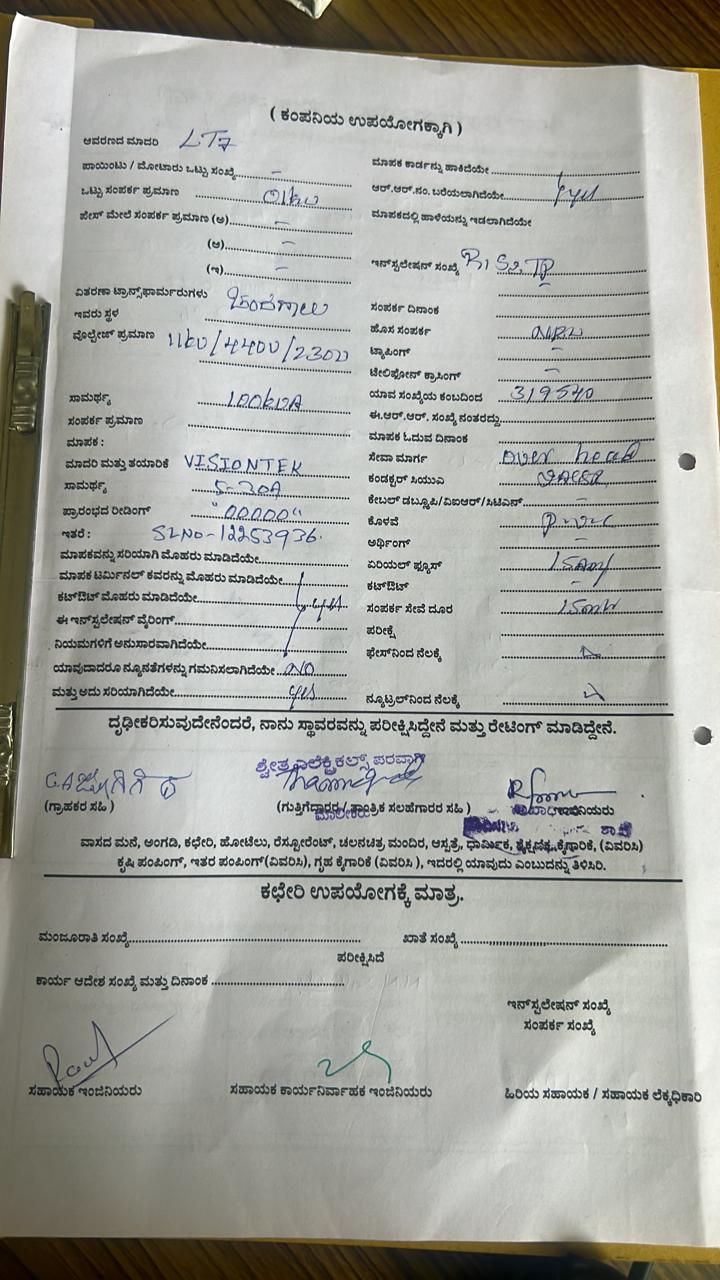 ( ಕಂಪನಿಯ ಉಪಯೋಗಕ್ಕಾಗಿ )
ಆವರಣದ ಮಾದರಿ LT7
ಪಾಯಿಂಟು / ಮೋಟಾರು ಒಟ್ಟು ಸಂಖ್ಯೆ -
ಒಟ್ಟು ಸಂಪರ್ಕ ಪ್ರಮಾಣ 01kw
ಫೇಸ್ ಮೇಲೆ ಸಂಪರ್ಕ ಪ್ರಮಾಣ (ಅ) -
(ಆ) -
(ಇ) -
ವಿತರಣಾ ಟ್ರಾನ್ಸ್‌ಫಾರ್ಮರುಗಳು
ಇವರು ಸ್ಥಳ
ವೋಲ್ಟೇಜ್ ಪ್ರಮಾಣ 11kv/440v/230v
ಸಾಮರ್ಥ್ಯ 100kVA
ಸಂಪರ್ಕ ಪ್ರಮಾಣ
ಮಾಪಕ :
ಮಾದರಿ ಮತ್ತು ತಯಾರಿಕೆ VISIONTEK
ಸಾಮರ್ಥ್ಯ 5-30A
ಪ್ರಾರಂಭದ ರೀಡಿಂಗ್ "00000"
ಇತರೆ : SLNO-12253936
ಮಾಪಕವನ್ನು ಸರಿಯಾಗಿ ಮೊಹರು ಮಾಡಿದೆಯೇ
ಮಾಪಕ ಟರ್ಮಿನಲ್ ಕವರನ್ನು ಮೊಹರು ಮಾಡಿದೆಯೇ
ಕಟ್‌ಔಟ್ ಮೊಹರು ಮಾಡಿದೆಯೇ yes
ಈ ಇನ್‌ಸ್ಪಲೇಷನ್ ವೈರಿಂಗ್
ನಿಯಮಗಳಿಗೆ ಅನುಸಾರವಾಗಿದೆಯೇ
ಯಾವುದಾದರೂ ನ್ಯೂನತೆಗಳನ್ನು ಗಮನಿಸಲಾಗಿದೆಯೇ NO
ಮತ್ತು ಅದು ಸರಿಯಾಗಿದೆಯೇ yes
ಮಾಪಕ ಕಾರ್ಡನ್ನು ಹಾಕಿದೆಯೇ
ಆರ್.ಆರ್.ನಂ. ಬರೆಯಲಾಗಿದೆಯೇ yes
ಮಾಪಕದಲ್ಲಿ ಹಾಳೆಯನ್ನು ಇಡಲಾಗಿದೆಯೇ
ಇನ್‌ಸ್ಪಲೇಷನ್ ಸಂಖ್ಯೆ
ಸಂಪರ್ಕ ದಿನಾಂಕ
ಹೊಸ ಸಂಪರ್ಕ
ಟ್ಯಾಪಿಂಗ್ -
ಟೆಲಿಫೋನ್ ಕ್ರಾಸಿಂಗ್ -
ಯಾವ ಸಂಖ್ಯೆಯ ಕಂಬದಿಂದ 319540
ಈ.ಆರ್.ಆರ್. ಸಂಖ್ಯೆ ನಂತರದ್ದು
ಮಾಪಕ ಓದುವ ದಿನಾಂಕ
ಸೇವಾ ಮಾರ್ಗ over head
ಕಂಡಕ್ಟರ್ ಸಿಯುಎ
ಕೇಬಲ್ ಡಬ್ಲ್ಯೂಪಿ/ವಿಐಆರ್/ಸಿಟಿಎಸ್ -
ಕೊಳವೆ
ಅರ್ಥಿಂಗ್ -
ಏರಿಯಲ್ ಫ್ಯೂಸ್
ಕಟ್‌ಔಟ್ -
ಸಂಪರ್ಕ ಸೇವೆ ದೂರ
ಪರೀಕ್ಷೆ
ಫೇಸ್‌ನಿಂದ ನೆಲಕ್ಕೆ
ನ್ಯೂಟ್ರಲ್‌ನಿಂದ ನೆಲಕ್ಕೆ
ದೃಢೀಕರಿಸುವುದೇನೆಂದರೆ, ನಾನು ಸ್ಥಾವರವನ್ನು ಪರೀಕ್ಷಿಸಿದ್ದೇನೆ ಮತ್ತು ರೇಟಿಂಗ್ ಮಾಡಿದ್ದೇನೆ.
ಶ್ವೇತ ಎಲೆಕ್ಟ್ರಿಕಲ್ಸ್ ಪರವಾಗಿ
(ಗ್ರಾಹಕರ ಸಹಿ )
(ಗುತ್ತಿಗೆದ್ದಾರರ / ತಾಂತ್ರಿಕ ಸಲಹೆಗಾರರ ಸಹಿ )
ಮಾಲೀಕರು
ವಾಸದ ಮನೆ, ಅಂಗಡಿ, ಕಛೇರಿ, ಹೋಟೆಲು, ರೆಸ್ಟೋರೆಂಟ್, ಚಲನಚಿತ್ರ ಮಂದಿರ, ಆಸ್ಪತ್ರೆ, ಧಾರ್ಮಿಕ, ಶೈಕ್ಷಣಿಕ, ಕೈಗಾರಿಕೆ, (ವಿವರಿಸಿ)
ಕೃಷಿ ಪಂಪಿಂಗ್, ಇತರ ಪಂಪಿಂಗ್(ವಿವರಿಸಿ), ಗೃಹ ಕೈಗಾರಿಕೆ (ವಿವರಿಸಿ ), ಇದರಲ್ಲಿ ಯಾವುದು ಎಂಬುದನ್ನು ತಿಳಿಸಿರಿ.
ಕಛೇರಿ ಉಪಯೋಗಕ್ಕೆ ಮಾತ್ರ.
ಮಂಜೂರಾತಿ ಸಂಖ್ಯೆ
ಖಾತೆ ಸಂಖ್ಯೆ
ಪರೀಕ್ಷಿಸಿದೆ
ಕಾರ್ಯ ಆದೇಶ ಸಂಖ್ಯೆ ಮತ್ತು ದಿನಾಂಕ
ಇನ್‌ಸ್ಪಲೇಷನ್ ಸಂಖ್ಯೆ
ಸಂಪರ್ಕ ಸಂಖ್ಯೆ
ಸಹಾಯಕ ಇಂಜಿನಿಯರು
ಸಹಾಯಕ ಕಾರ್ಯನಿರ್ವಾಹಕ ಇಂಜಿನಿಯರು
ಹಿರಿಯ ಸಹಾಯಕ / ಸಹಾಯಕ ಲೆಕ್ಕಧಿಕಾರಿ